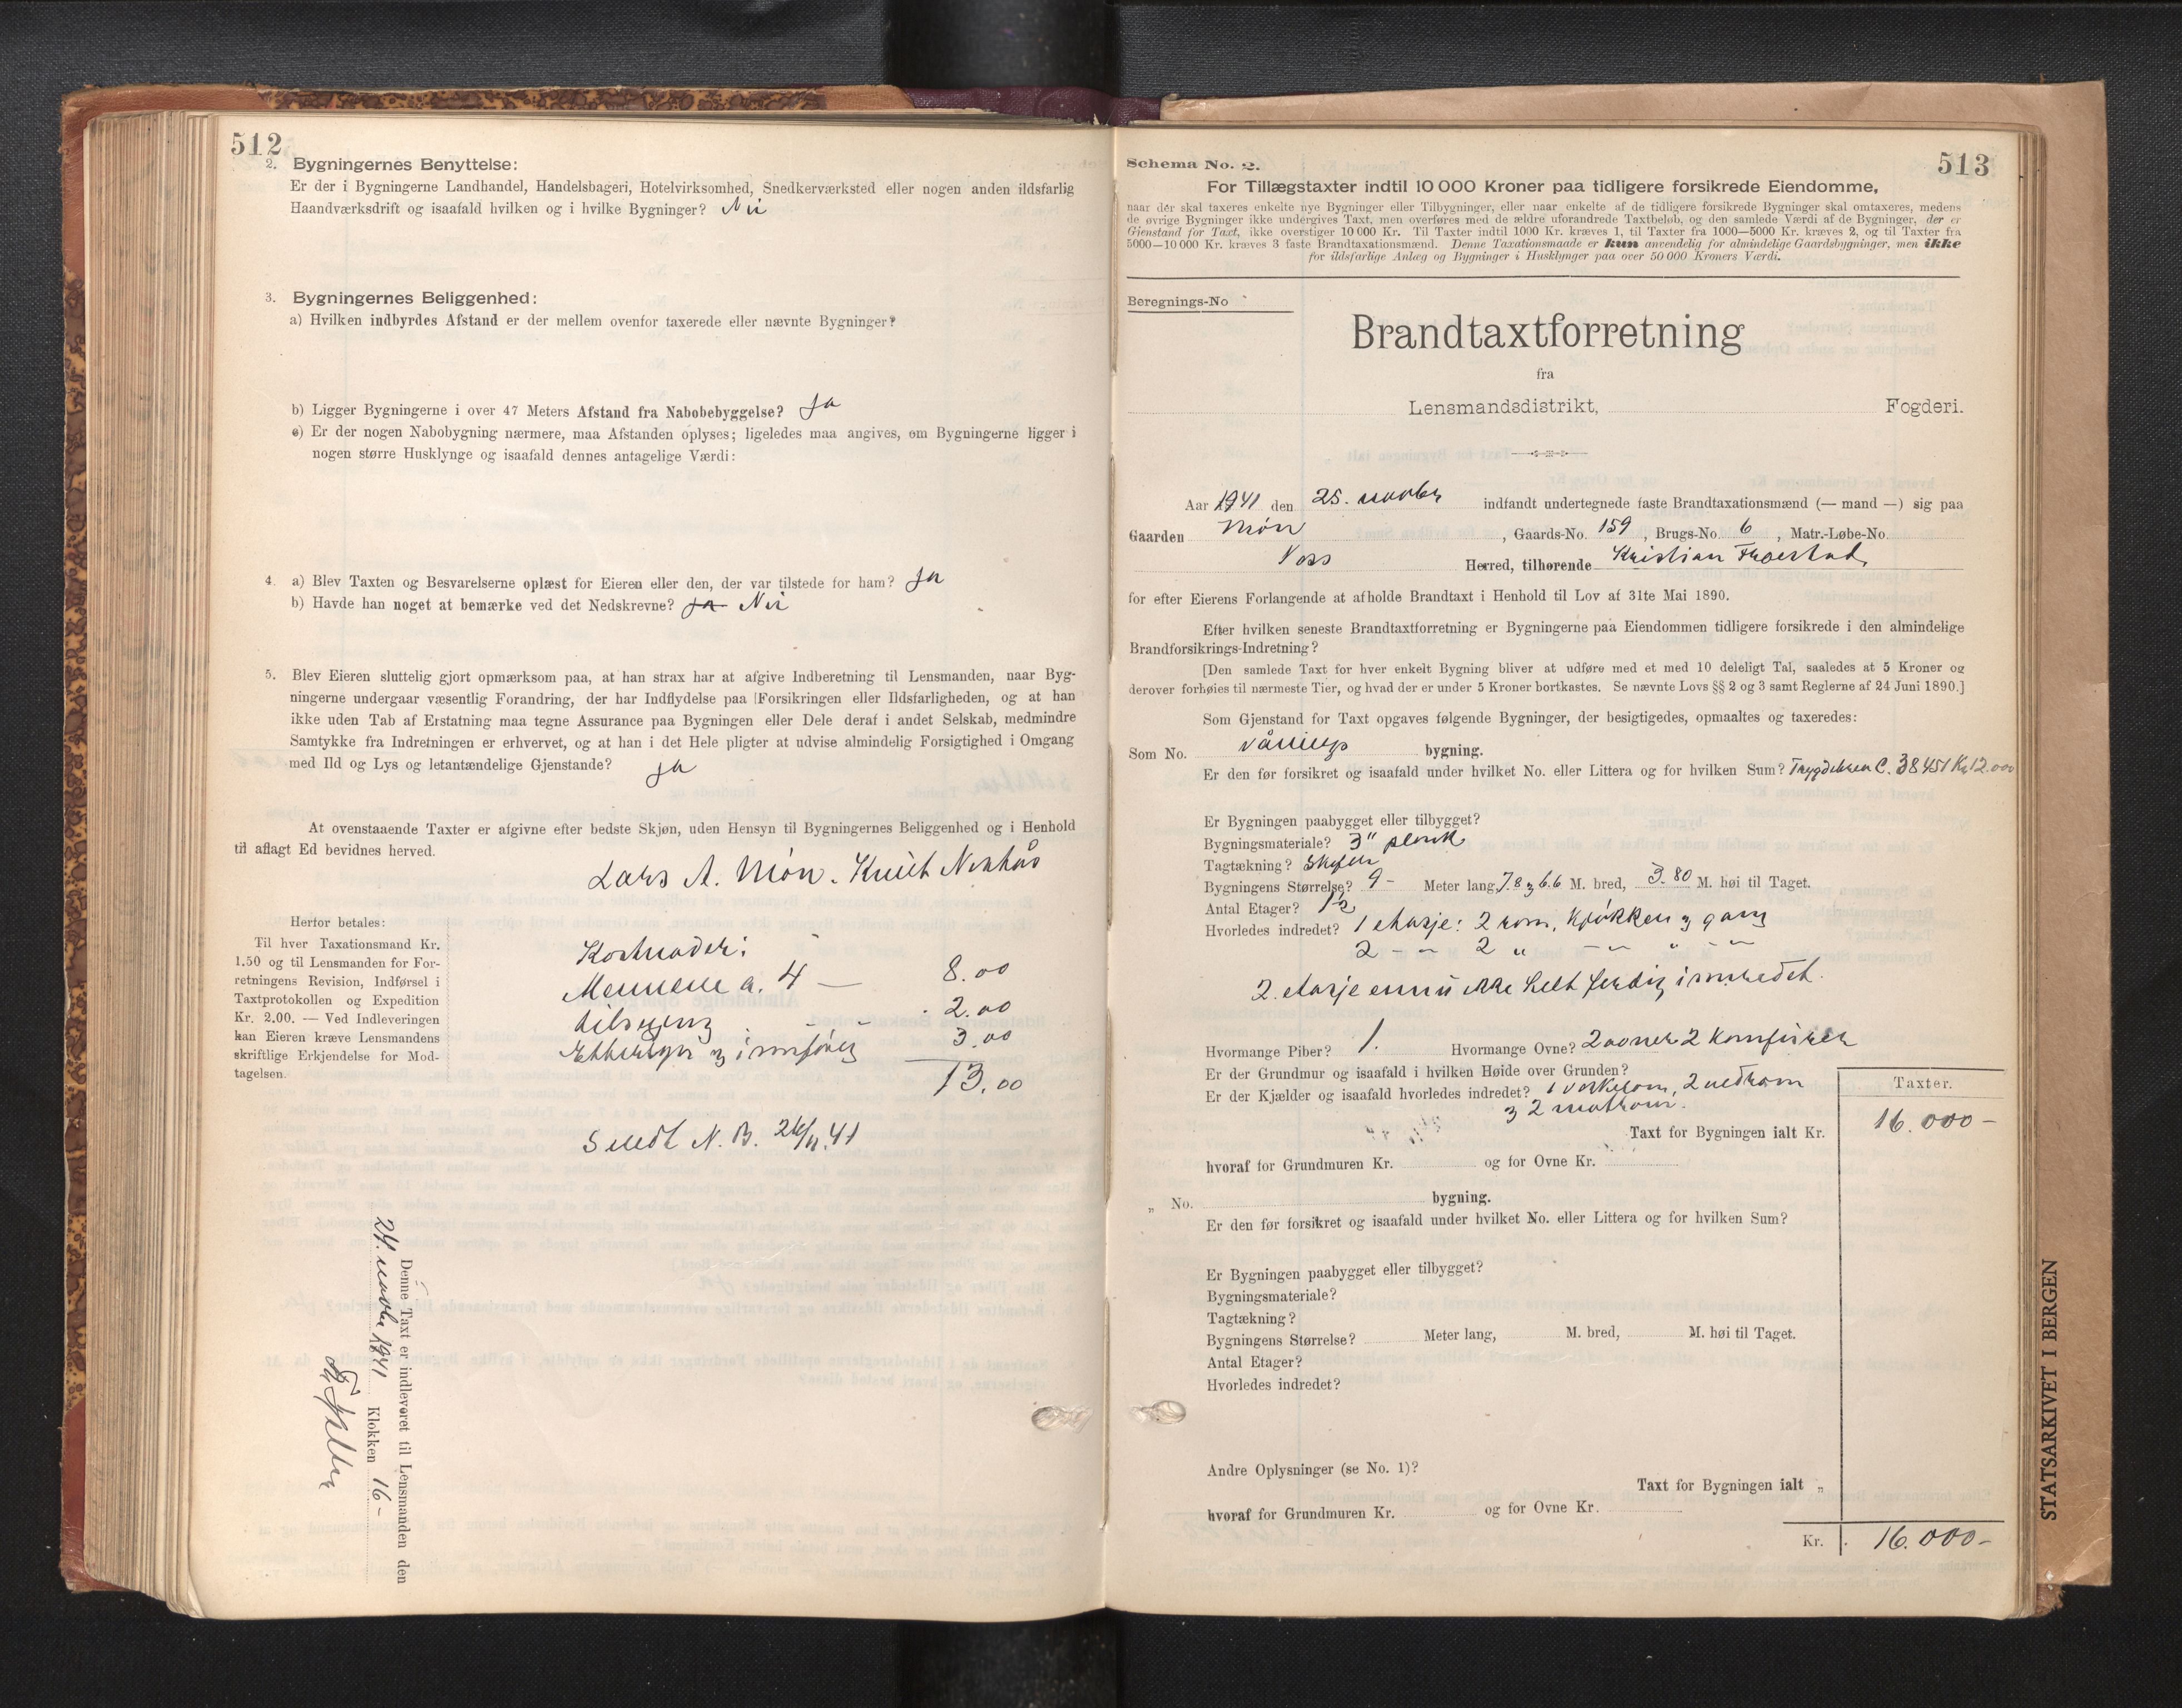 512
2. Bygningernes Benyttelse:
Er der i Bygningerne Landhandel, Handelsbageri, Hotelvirksomhed, Snedkerværksted eller nogen anden ildsfarlig
Haandværksdrift og isaafald hvilken og i hvilke Bygninger? Nei
3. Bygningernes Beliggenhed:
a) Hvilken indbyrdes Afstand er der mellem ovenfor taxerede eller nævnte Bygninger?
b) Ligger Bygningerne i over 47 Meters Afstand fra Nabobebyggelse? Ja
c) Er der nogen Nabobygning nærmere, maa Afstanden oplyses; ligeledes maa angives, om Bygningerne ligger i
nogen større Husklynge og isaafald dennes antagelige Værdi:
4. a) Blev Taxten og Besvarelserne oplæst for Eieren eller den, der var tilstede for ham? Ja
b) Havde han noget at bemærke ved det Nedskrevne? Ja Nei
5. Blev Eieren sluttelig gjort opmærksom paa, at han strax har at afgive Indberetning til Lensmanden, naar Byg-
ningerne undergaar væsentlig Forandring, der har Indflydelse paa Forsikringen eller Ildsfarligheden, og at han
ikke uden Tab af Erstatning maa tegne Assurance paa Bygningen eller Dele deraf i andet Selskab, medmindre
Samtykke fra Indretningen er erhvervet, og at han i det Hele pligter at udvise almindelig Forsigtighed i Omgang
med Ild og Lys og letantændelige Gjenstande? Ja
At ovenstaaende Taxter er afgivne efter bedste Skjøn, uden Hensyn til Bygningernes Beliggenhed og i Henhold
til aflagt Ed bevidnes herved.
Lars A. Møn. Knut
Herfor betales:
Til hver Taxationsmand Kr.
1.50 og til Lensmanden for For-
retningens Revision, Indførsel i
Taxtprotokollen og Expedition
Kr. 2.00. — Ved Indleveringen
kan Eieren kræve Lensmandens
skriftlige Erkjendelse for Mod-
tagelsen.
Kostnader:
Mennene a. 4 — 8.00
2.00
3.00
13.00
Sendt N. B. 26/11.41
Denne Taxt er indleveret til Lensmanden den
24. novbr 1941 Klokken 16-
513
Schema No. 2.
For Tillægstaxter indtil 10 000 Kroner paa tidligere forsikrede Eiendomme,
naar dér skal taxeres enkelte nye Bygninger eller Tilbygninger, eller naar enkelte af de tidligere forsikrede Bygninger skal omtaxeres, medens
de øvrige Bygninger ikke undergives Taxt, men overføres med de ældre uforandrede Taxtbeløb, og den samlede Værdi af de Bygninger, der er
Gjenstand for Taxt, ikke overstiger 10 000 Kr. Til Taxter indtil 1000 Kr. kræves 1, til Taxter fra 1000—5000 Kr. kræves 2, og til Taxter fra
5000—10 000 Kr. kræves 3 faste Brandtaxationsmænd. Denne Taxationsmaade er kun anvendelig for almindelige Gaardsbygninger, men ikke
for ildsfarlige Anlæg og Bygninger i Husklynger paa over 50 000 Kroners Værdi.
Beregnings-No
Brandtaxtforretning
fra
Lensmandsdistrikt, Fogderi.
Aar 1941 den 25. novbr indfandt undertegnede faste Brandtaxationsmænd (— mand —) sig paa
Gaarden Møn , Gaards-No. 159 , Brugs-No. 6 , Matr.-Løbe-No.
Voss Herred, tilhørende Kristian
for efter Eierens Forlangende at afholde Brandtaxt i Henhold til Lov af 31te Mai 1890.
Efter hvilken seneste Brandtaxtforretning er Bygningerne paa Eiendommen tidligere forsikrede i den almindelige
Brandforsikrings-Indretning?
[Den samlede Taxt for hver enkelt Bygning bliver at udføre med et med 10 deleligt Tal, saaledes at 5 Kroner og
derover forhøies til nærmeste Tier, og hvad der er under 5 Kroner bortkastes. Se nævnte Lovs §§ 2 og 3 samt Reglerne af 24 Juni 1890.]
Som Gjenstand for Taxt opgaves følgende Bygninger, der besigtigedes, opmaaltes og taxeredes:
Som No. Vånings bygning.
Er den før forsikret og isaafald under hvilket No. eller Littera og for hvilken Sum? C. 38451 Kr 12.000
Er Bygningen paabygget eller tilbygget?
Bygningsmateriale? 3" plank
Tagtækning? Skifer
Bygningens Størrelse? 9 - Meter lang, 7.8 og 6.6 M. bred, 3.80 M. høi til Taget.
Antal Etager? 1½
Hvorledes indredet? 1 etasje: 2 rom, kjøkken og gang
2 - " - 2 " - " - " - " -
2. etasje ennu ikke helt ferdig innredet.
Hvormange Piber? 1. Hvormange Ovne? 2 ovner 2 komfurer
Er der Grundmur og isaafald i hvilken Høide over Grunden?
Er der Kjælder og isaafald hvorledes indredet? 1 vaskerom, 2 vedrom
og 2 matrom.
Taxter.
Taxt for Bygningen ialt Kr. 16.000-
hvoraf for Grundmuren Kr. og for Ovne Kr.
„ No. bygning.
Er den før forsikret og isaafald under hvilket No. eller Littera og for hvilken Sum?
Er Bygningen paabygget eller tilbygget?
Bygningsmateriale?
Tagtækning?
Bygningens Størrelse? Meter lang, M. bred, M. høi til Taget.
Antal Etager?
Hvorledes indredet?
Andre Oplysninger (se No. 1)?
Taxt for Bygningen ialt „
hvoraf for Grundmuren Kr. og for Ovne Kr.
Kr. 16.000-
STATSARKIVET I BERGEN